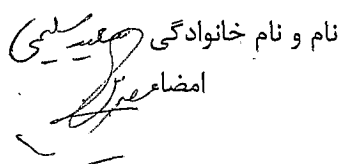 نام و نام خانوادگی سعید سلیمی
امضاء